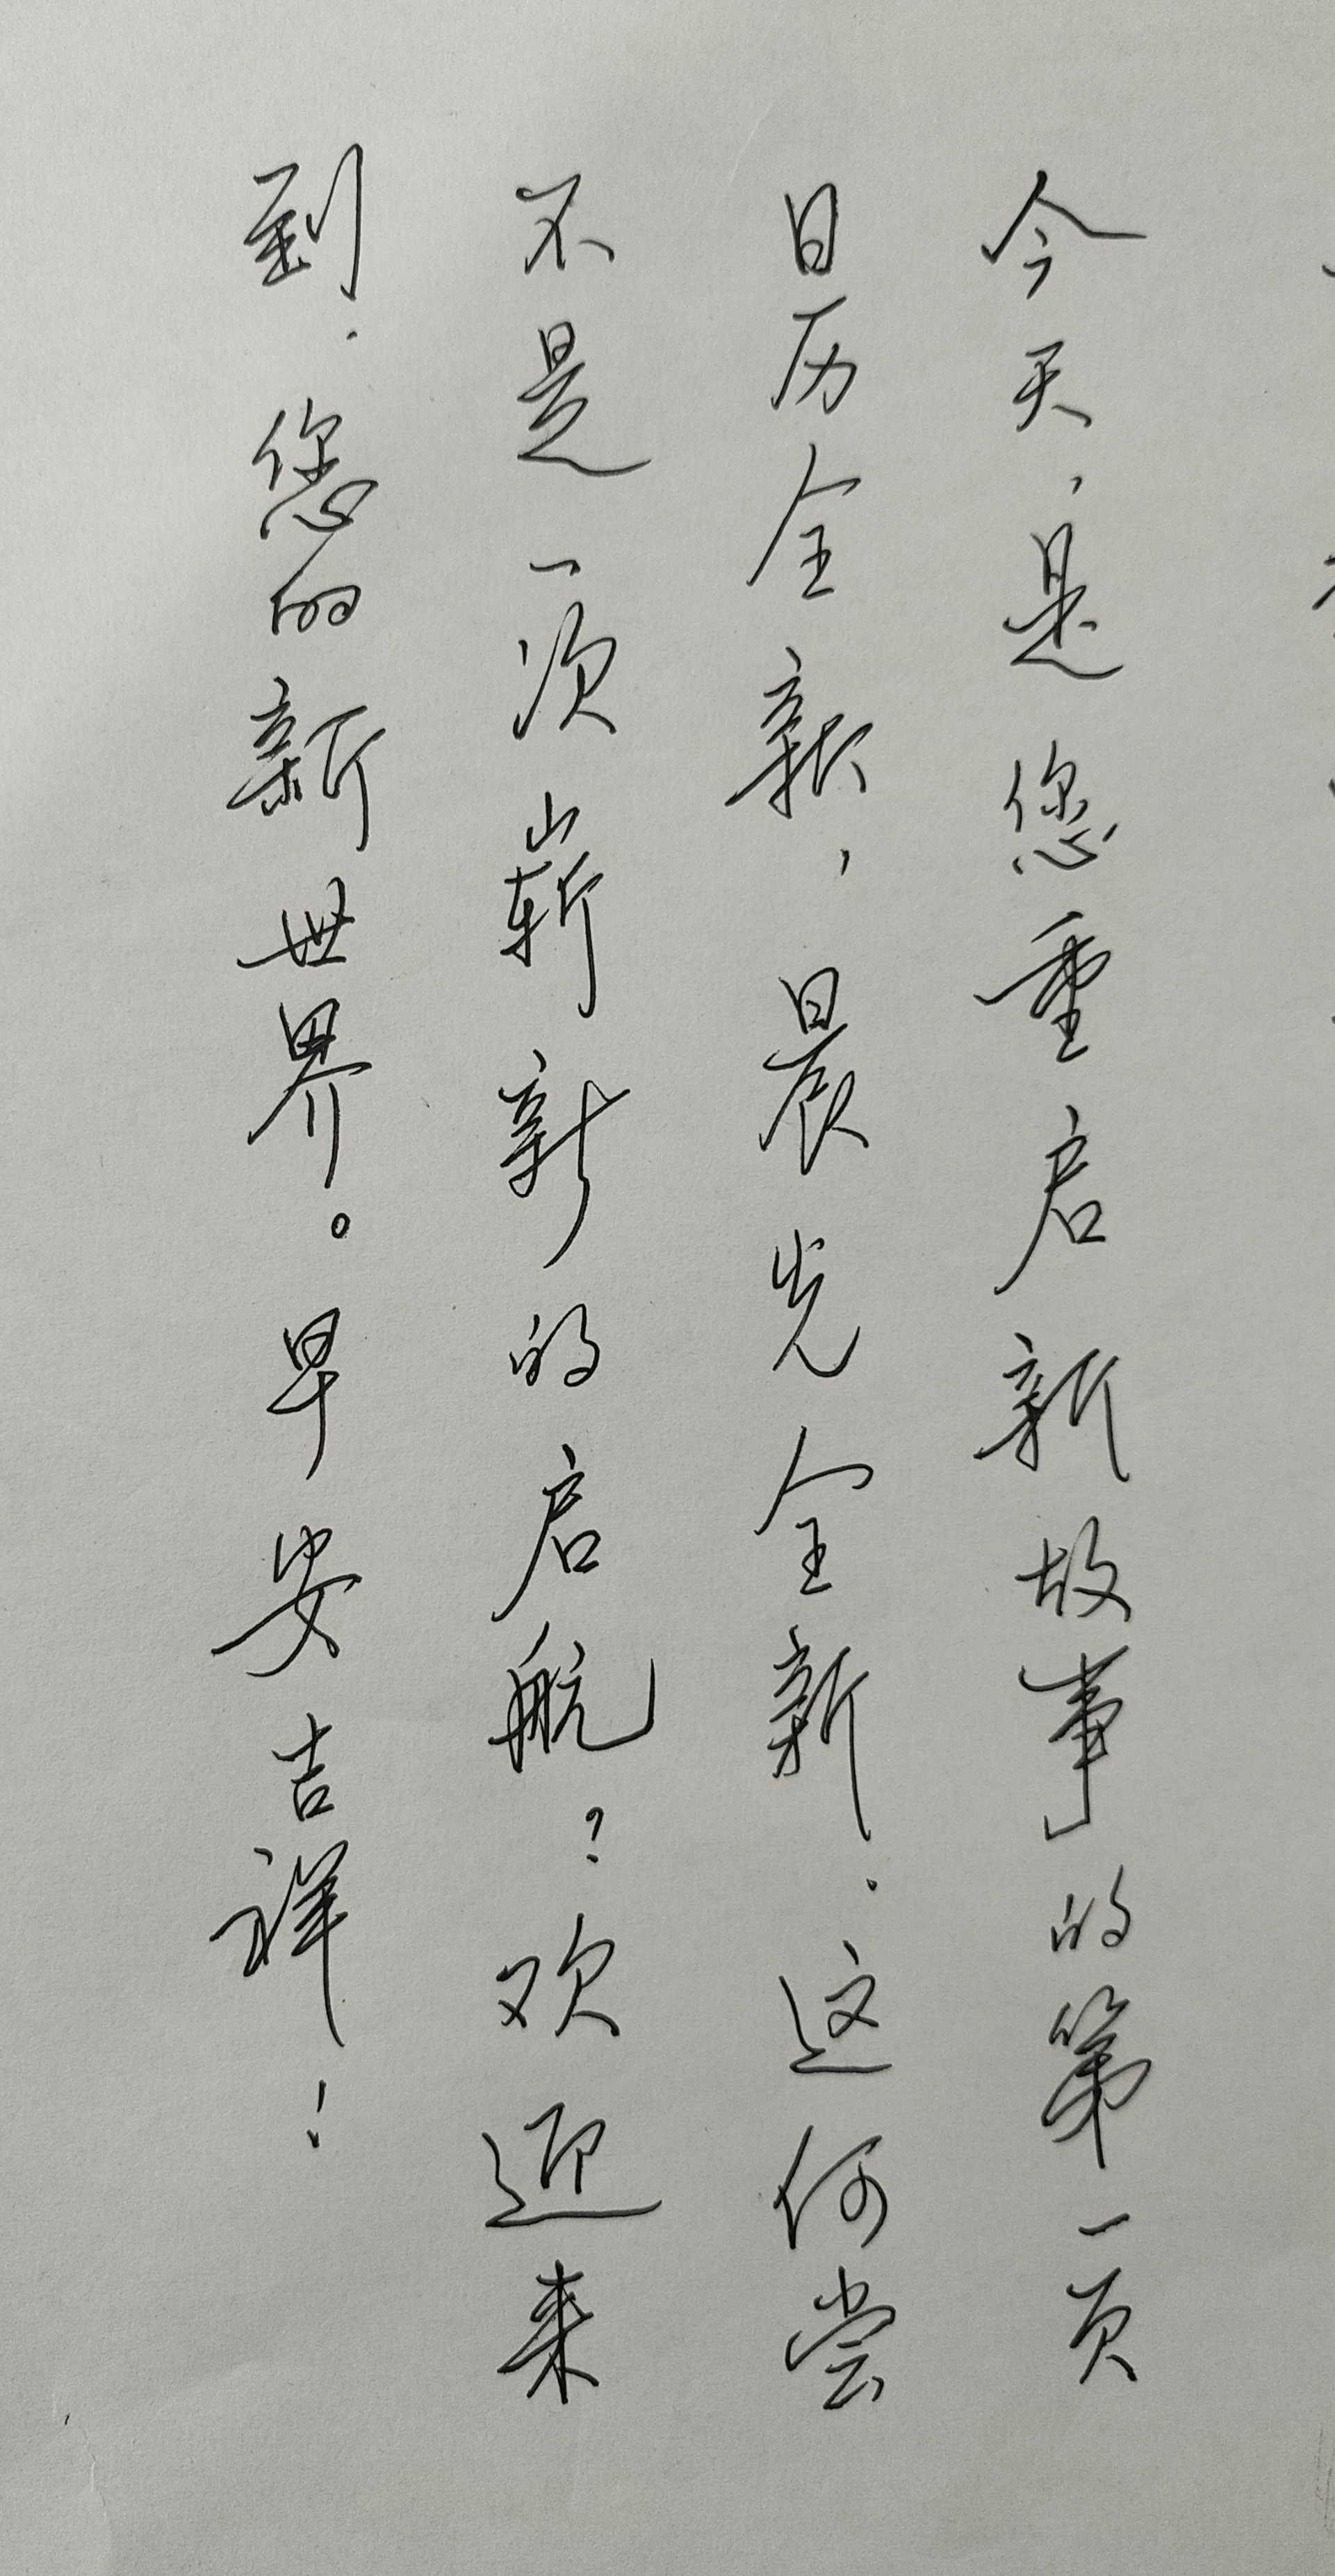 今天，是您重启新故事的第一页
日历全新，晨光全新．这何尝
不是一次崭新的启航？欢迎来
到．您的新世界。早安吉祥！